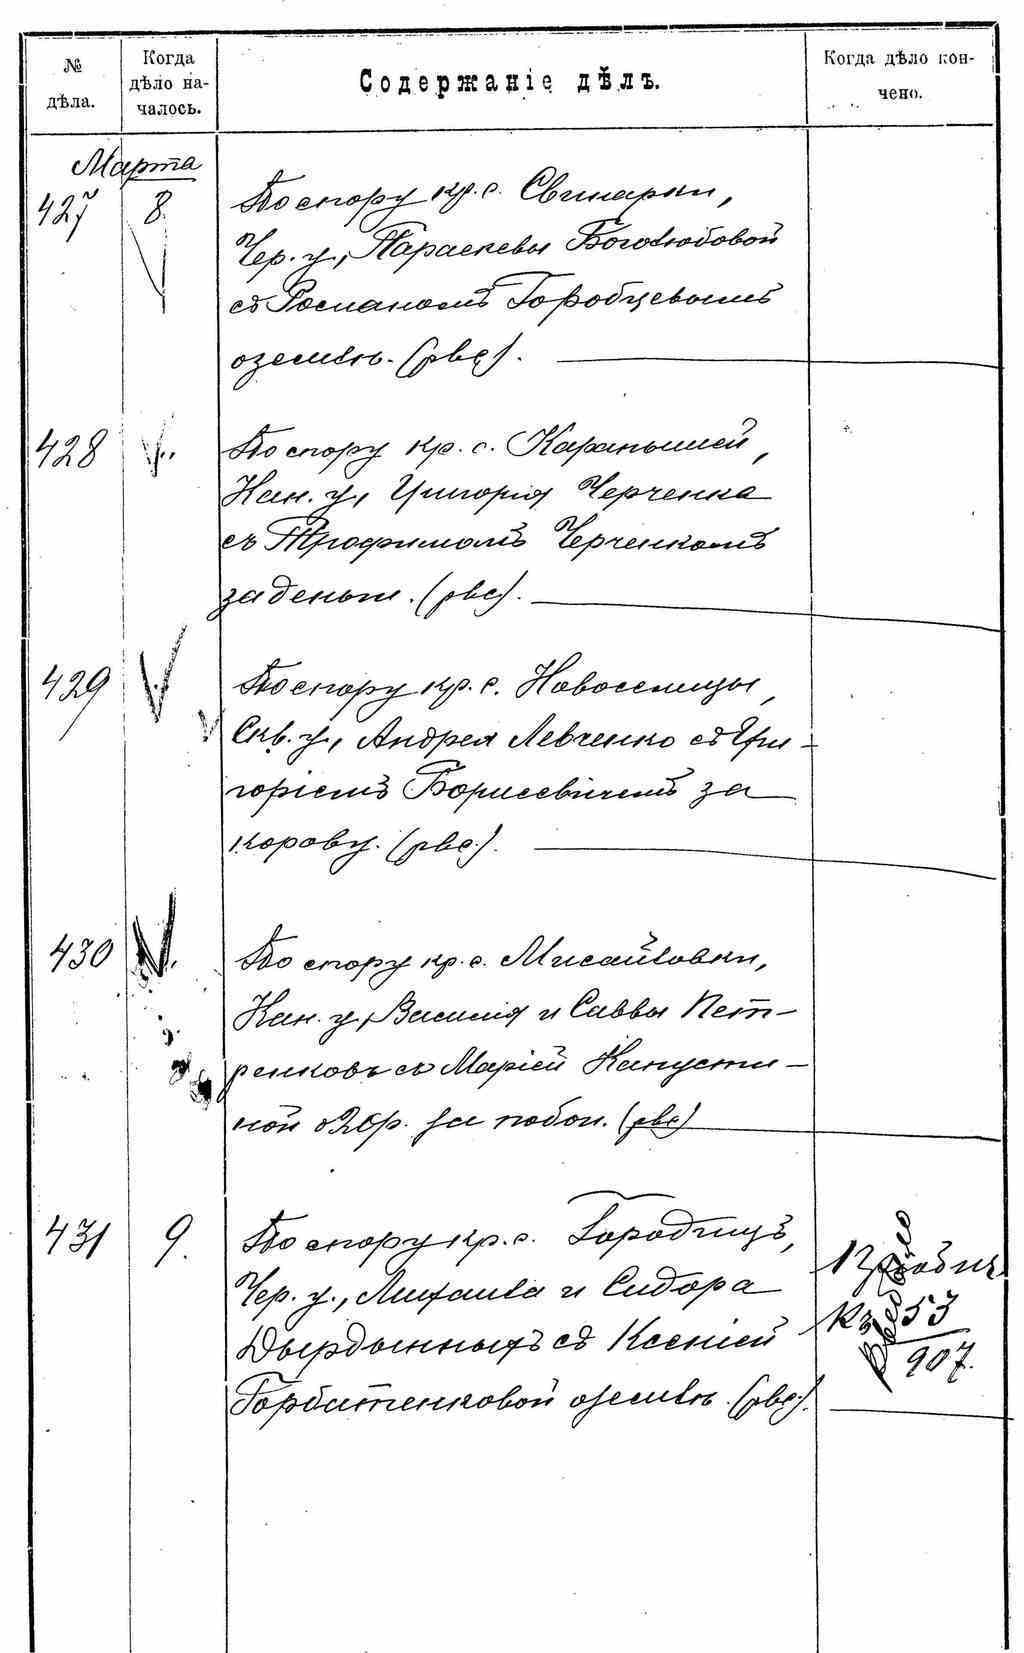 № дѣла.
Когда дѣло на-
чалось.
Содержаніе дѣлъ.
Когда дѣло кон-
чено.
Марта
427 8. По спору кр. с. Свинарки,
Чер. у., Параскевы Боголюбовой
съ Романомъ Горобцевымъ
о землѣ. (рвс).
428 По спору кр. с. Карапышей,
Кан. у., Григорія Черченка
съ Трофимомъ Черченкомъ
за деньги. (рвс).
429 По спору кр. с. Новоселицы,
Скв. у., Андрея Левченко съ Гри-
горіемъ Борисевичемъ за
корову. (рвс).
430 По спору кр. с. Мисайловки,
Кан. у., Василія и Саввы Пет-
ренковъ съ Маріей Капусти-
ной о 20р. за побои. (рвс)
431 9. По спору кр. с. Городищъ,
Чер. у., Михаила и Сидора
Дырдынныхъ съ Ксеніей
Горбатенковой о землѣ. (рвс).
53
907.